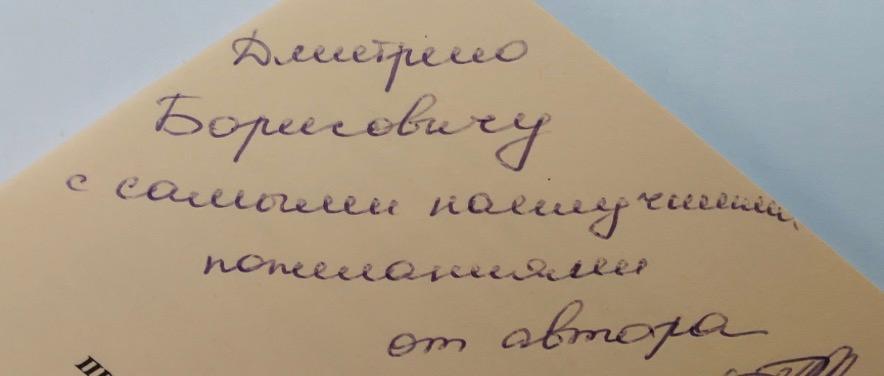 Дмитрию
Борисовичу
с самыми наилучшими
пожеланиями
от автора